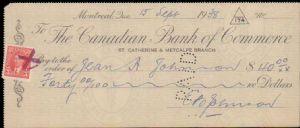 Montreal, Que. 15 Sept 1938
174
To The Canadian Bank of Commerce
ST. CATHERINE & METCALFE BRANCH
Pay to the order of Jean R Johnson $40.00
Forty 00 Dollars
PAID
Johnson